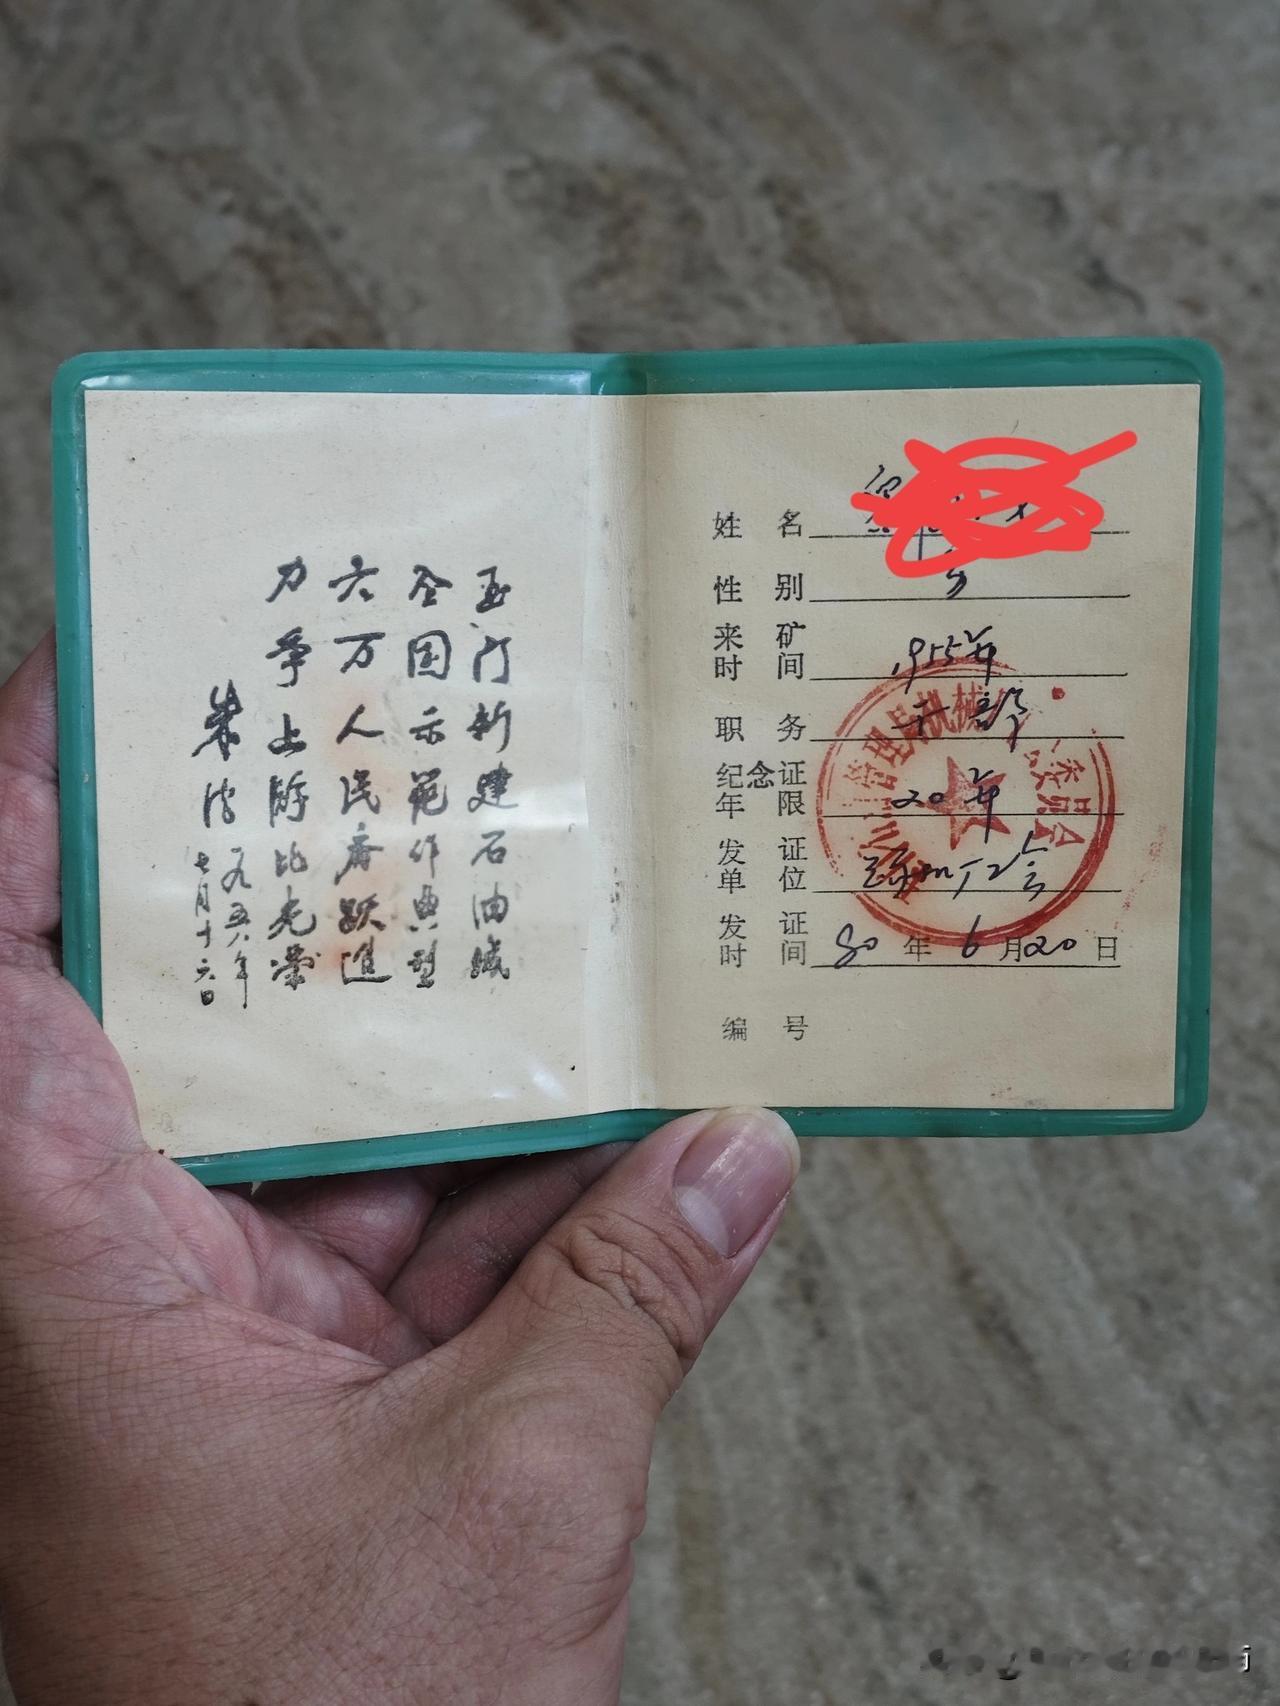 玉门新建石油城
全国示范作典型
六万人民齐跃进
力争上游比光荣
朱德
一九五八年
七月十六日
姓名
性别 男
来矿时间 1955年
职务 干部
纪念证年限 20年
发证单位
发证时间 80年6月20日
编号
管理局机械
委员会